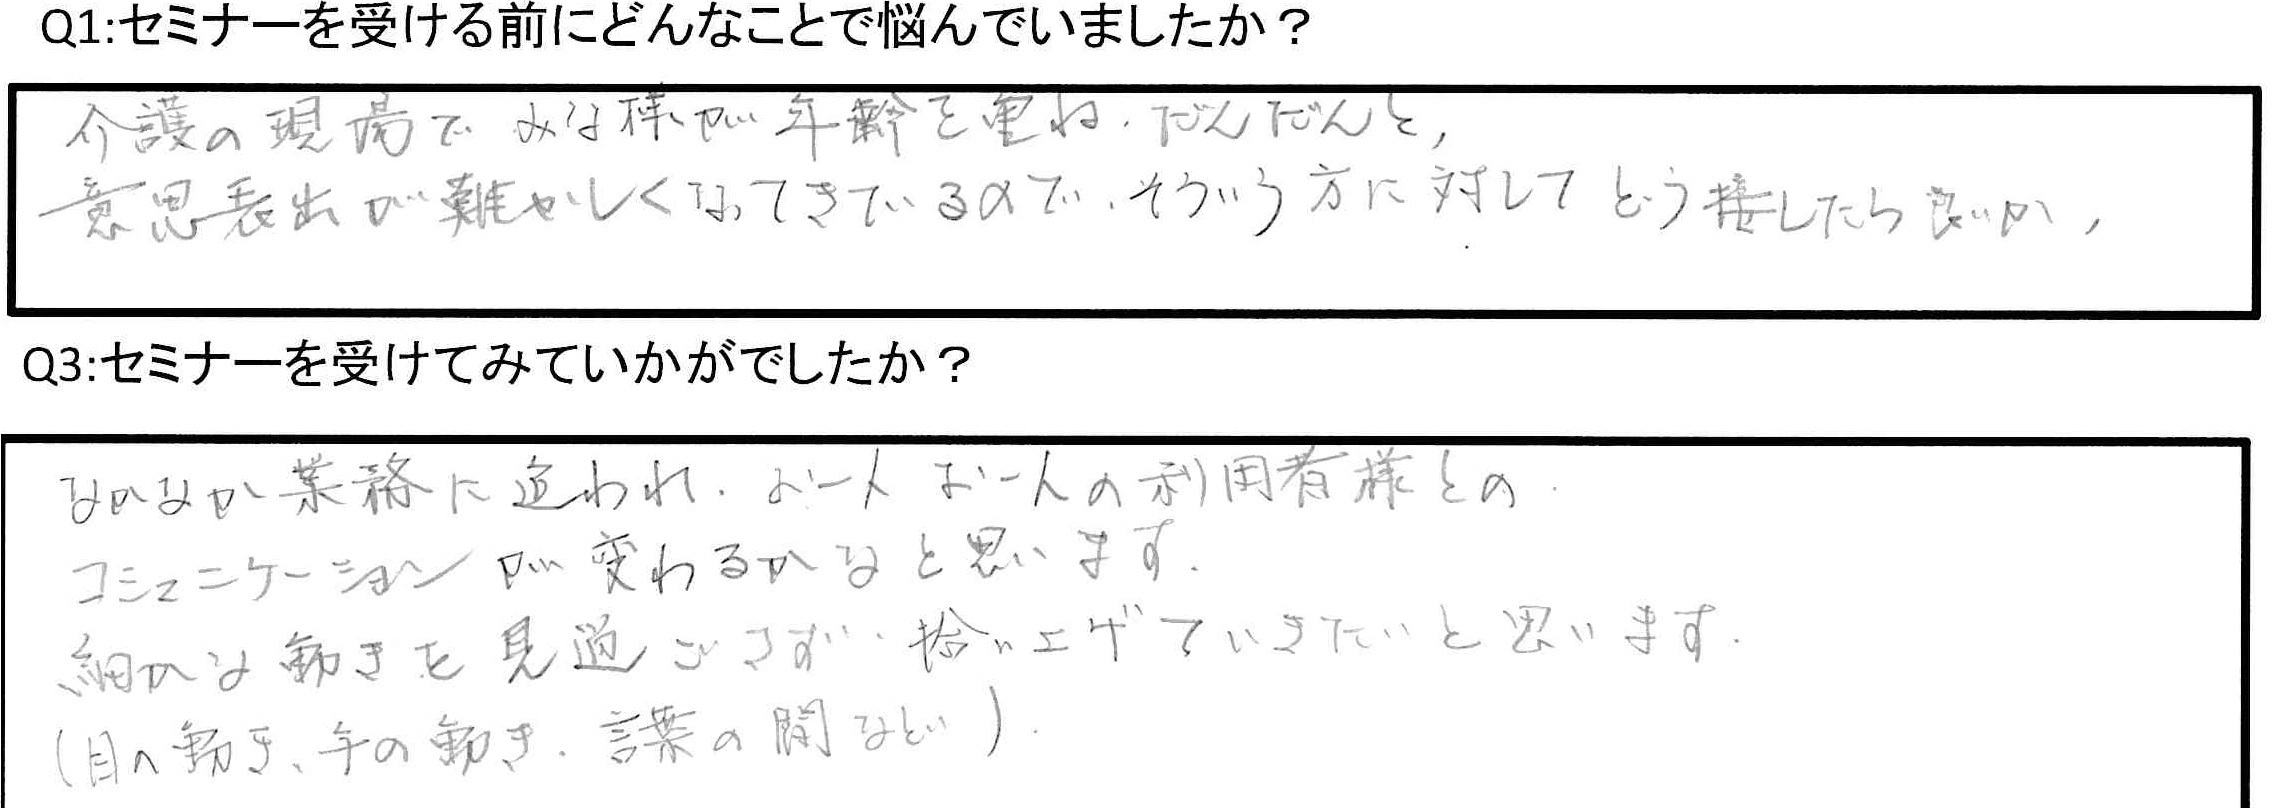 Q1:セミナーを受ける前にどんなことで悩んでいましたか？
介護の現場で みな様が年齢を重ね、だんだんと、
意思表出が難かしくなってきているので、そういう方に対してどう接したら良いか、
Q3:セミナーを受けてみていかがでしたか？
なかなか業務に追われ、お一人お一人の利用者様との
コミュニケーションが変わるかなと思います。
細かな動きを見過ごさず、拾い上げていきたいと思います。
(目の動き、手の動き、言葉の間など)